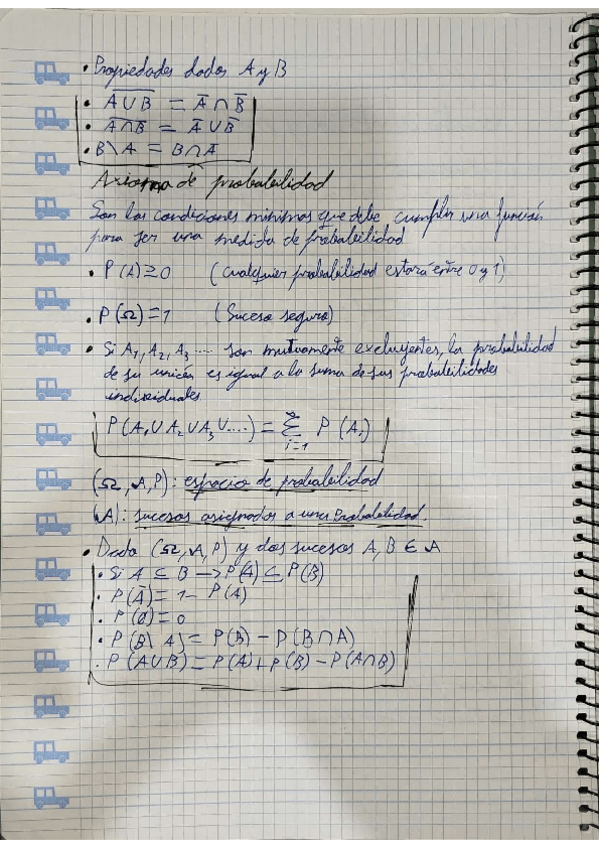 • Propiedades dados A y B
• \overline{A∪B} = Ā ∩ B̄
• \overline{A∩B} = Ā ∪ B̄
• B\A = B∩Ā
Axioma de probabilidad
Son las condiciones mínimas que debe cumplir una función
para ser una medida de probabilidad
• P(A)≥0 (cualquier probabilidad estará entre 0 y 1)
• P(Ω)=1 (Suceso seguro)
• Si A₁, A₂, A₃ .... son mutuamente excluyentes, la probabilidad
de su unión es igual a la suma de sus probabilidades
individuales
P(A₁∪A₂∪A₃∪....) = ∑_{i=1}^{∞} P(Aᵢ)
(Ω, A, P): espacio de probabilidad
(A): sucesos asignados a una Probabilidad.
• Dado (Ω, A, P) y dos sucesos A, B ∈ A
• Si A ⊆ B → P(A) ⊆ P(B)
• P(Ā) = 1 - P(A)
• P(Ø) = 0
• P(B\A) = P(B) - P(B∩A)
• P(A∪B) = P(A) + P(B) - P(A∩B)